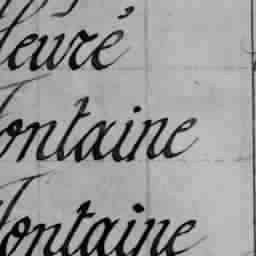 leuré
fontaine
fontaine